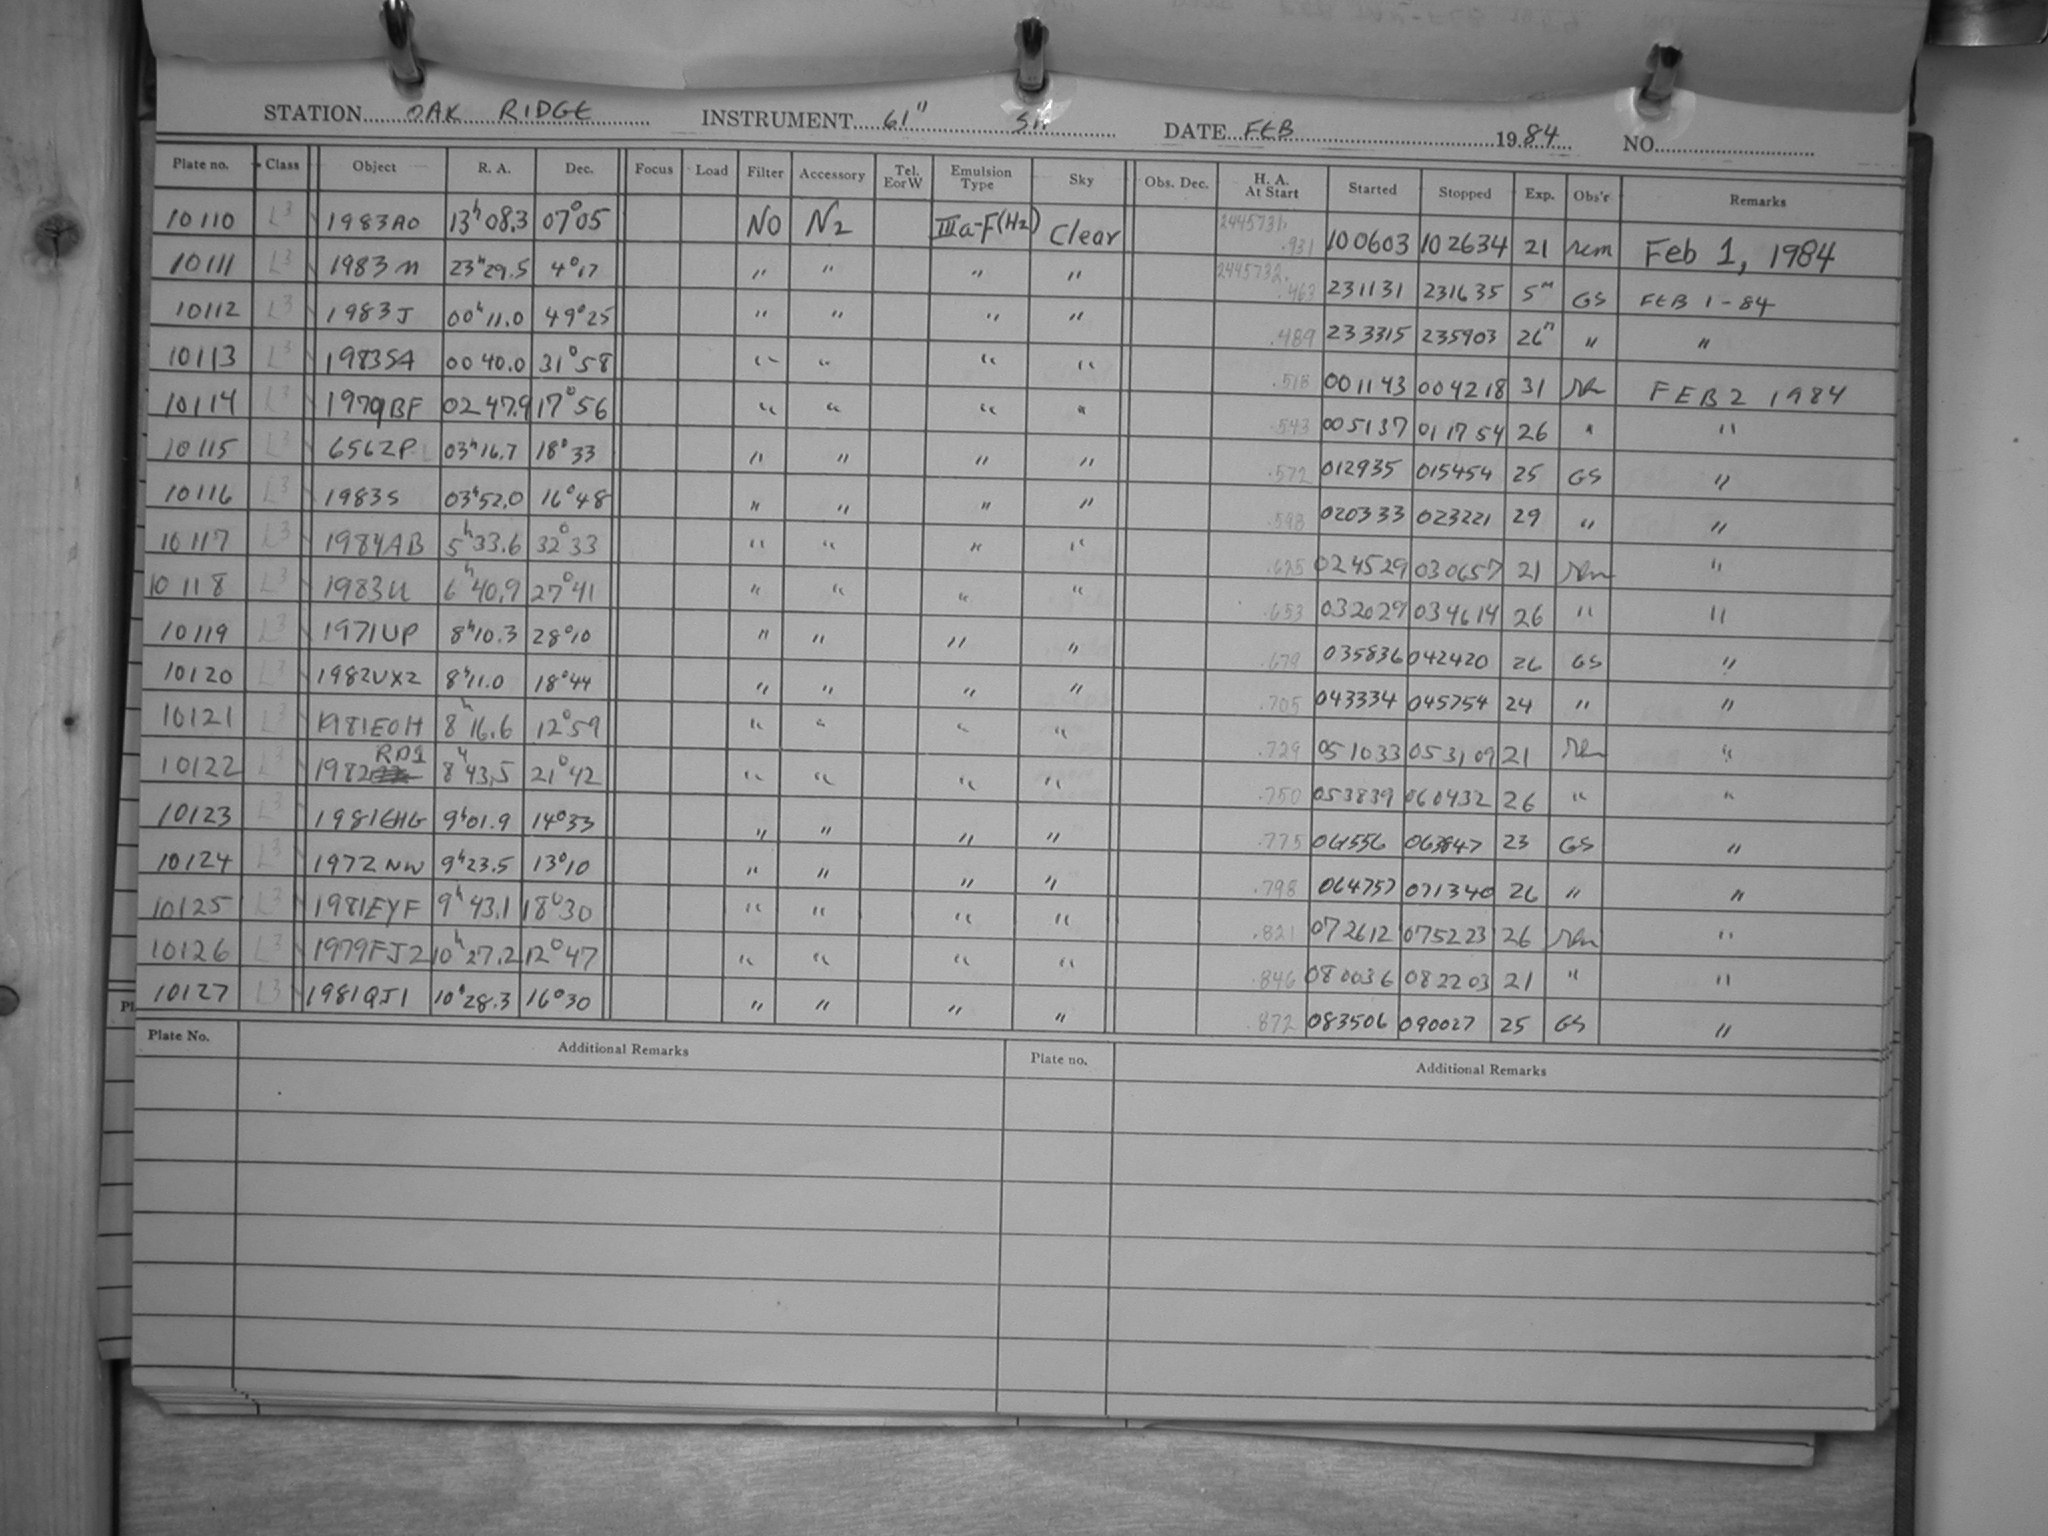 STATION OAK RIDGE INSTRUMENT 61" SH DATE FEB 1984 NO.
Plate no. Class Object R. A. Dec. Focus Load Filter Accessory Tel. E or W Emulsion Type Sky Obs. Dec. H. A. At Start Started Stopped Exp. Obs'r. Remarks
10110 L3 1983AO 13h08.3 07°05 NO N2 IIIa-F(H2) Clear 2445731. .931 100603 102634 21 rem Feb 1, 1984
10111 L3 1983 M 23h29.5 4°17 " " " " 2445732. .463 231131 231635 5m GS FEB 1-84
10112 L3 1983 J 00h11.0 49°25 " " " " .489 233315 235903 26m " "
10113 L3 1983SA 00 40.0 31°58 " " " " .518 001143 004218 31 FEB 2 1984
10114 L3 1979BF 02 47.9 17°56 " " " " .543 005137 011754 26 " "
10115 L3 6562P-L 03h16.7 18°33 " " " " .572 012935 015454 25 GS "
10116 L3 1983S 03h52.0 16°48 " " " " .598 020333 023221 29 " "
10117 L3 1984AB 5h33.6 32°33 " " " " .625 024529 030657 21 "
10118 L3 1983U 6h40.9 27°41 " " " " .653 032029 034614 26 " "
10119 L3 1971UP 8h10.3 28°10 " " " " .679 035836 042420 26 GS "
10120 L3 1982UX2 8h11.0 18°44 " " " " .705 043334 045754 24 " "
10121 L3 1981EOH 8h16.6 12°59 " " " " .729 051033 053109 21 "
10122 L3 1982 RD1 8h43.5 21°42 " " " " .750 053839 060432 26 " "
10123 L3 1981EHG 9h01.9 14°33 " " " " .775 061556 063847 23 GS "
10124 L3 1972 NW 9h23.5 13°10 " " " " .798 064757 071340 26 " "
10125 L3 1981EYF 9h43.1 18°30 " " " " .821 072612 075223 26 "
10126 L3 1979FJ2 10h27.2 12°47 " " " " .846 080036 082203 21 " "
10127 L3 1981QJ1 10h28.3 16°30 " " " " .872 083506 090027 25 GS "
Plate No. Additional Remarks Plate no. Additional Remarks